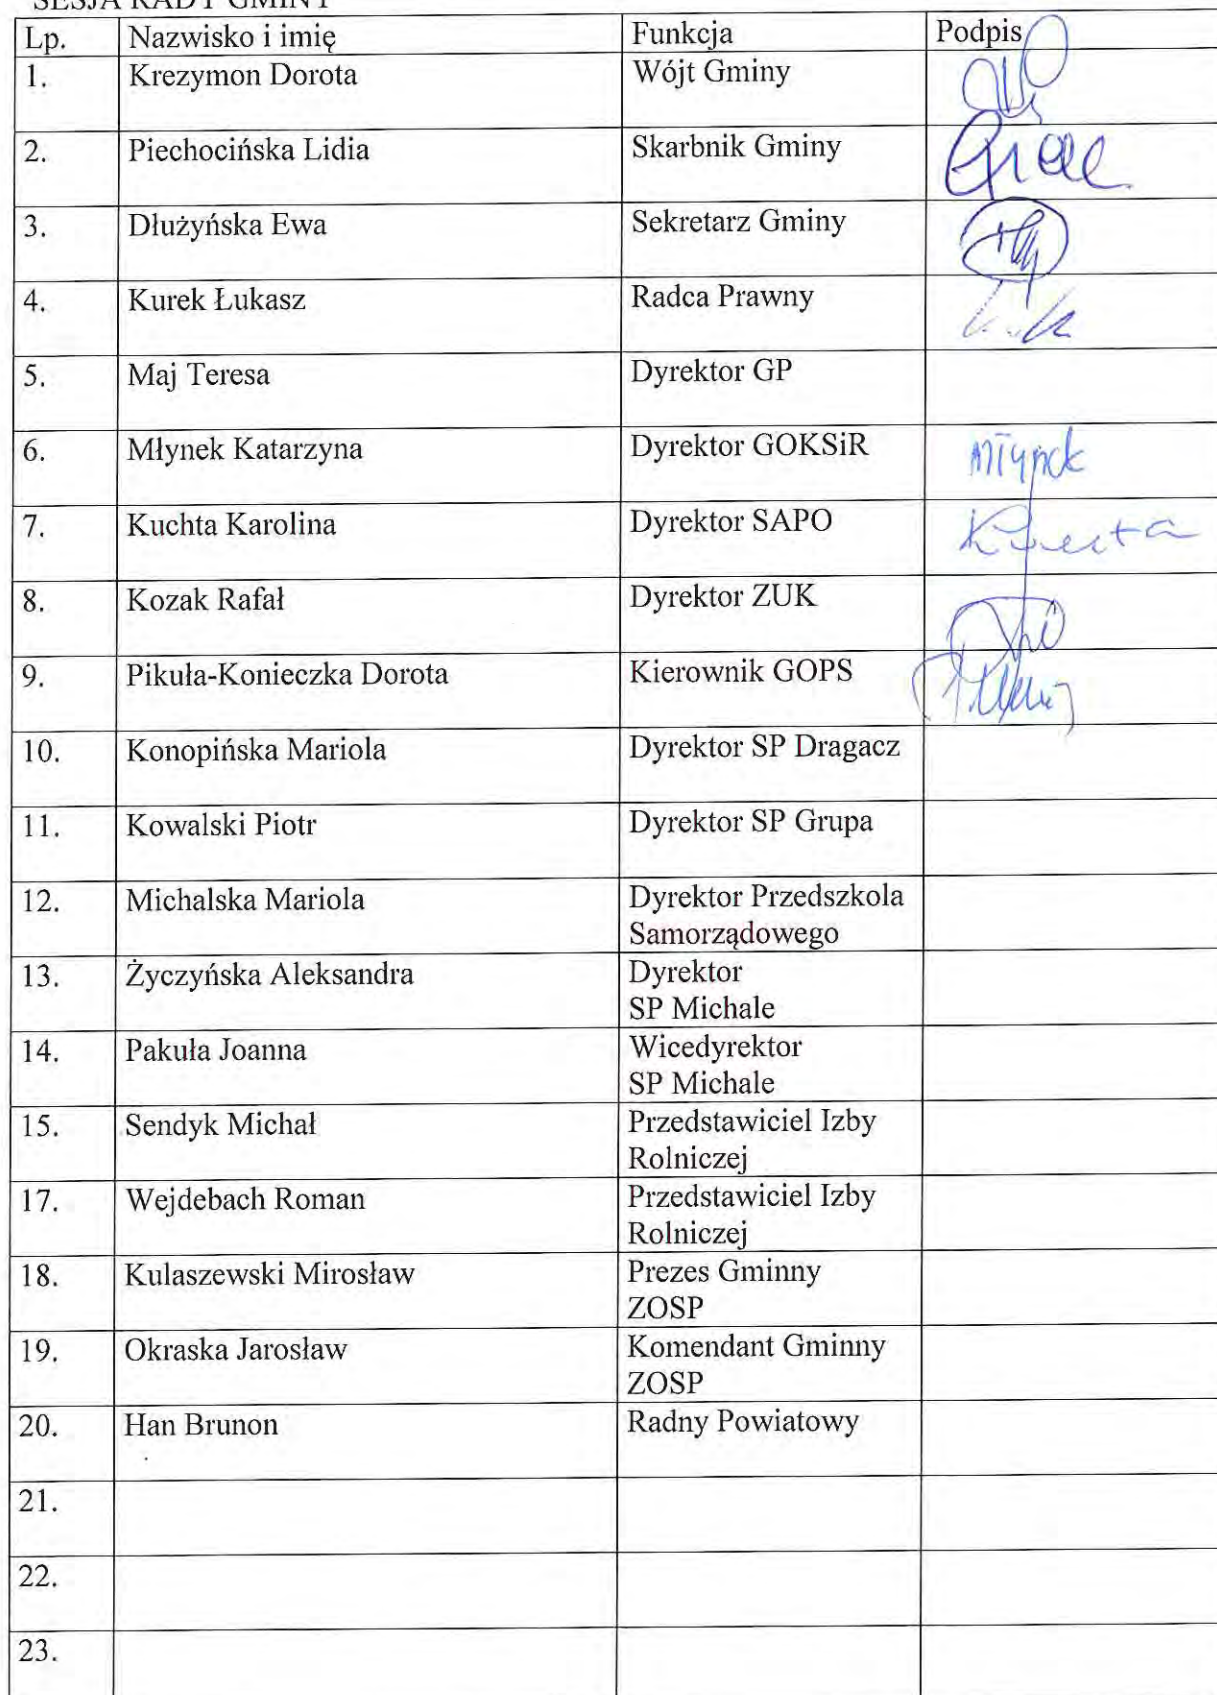 SESJA RADY GMINY
Lp. Nazwisko i imię Funkcja Podpis
1. Krezymon Dorota Wójt Gminy
2. Piechocińska Lidia Skarbnik Gminy
3. Dłużyńska Ewa Sekretarz Gminy
4. Kurek Łukasz Radca Prawny
5. Maj Teresa Dyrektor GP
6. Młynek Katarzyna Dyrektor GOKSiR Młynek
7. Kuchta Karolina Dyrektor SAPO Kuchta
8. Kozak Rafał Dyrektor ZUK
9. Pikuła-Konieczka Dorota Kierownik GOPS
10. Konopińska Mariola Dyrektor SP Dragacz
11. Kowalski Piotr Dyrektor SP Grupa
12. Michalska Mariola Dyrektor Przedszkola
Samorządowego
13. Życzyńska Aleksandra Dyrektor
SP Michale
14. Pakuła Joanna Wicedyrektor
SP Michale
15. Sendyk Michał Przedstawiciel Izby
Rolniczej
17. Wejdebach Roman Przedstawiciel Izby
Rolniczej
18. Kulaszewski Mirosław Prezes Gminny
ZOSP
19. Okraska Jarosław Komendant Gminny
ZOSP
20. Han Brunon Radny Powiatowy
21.
22.
23.